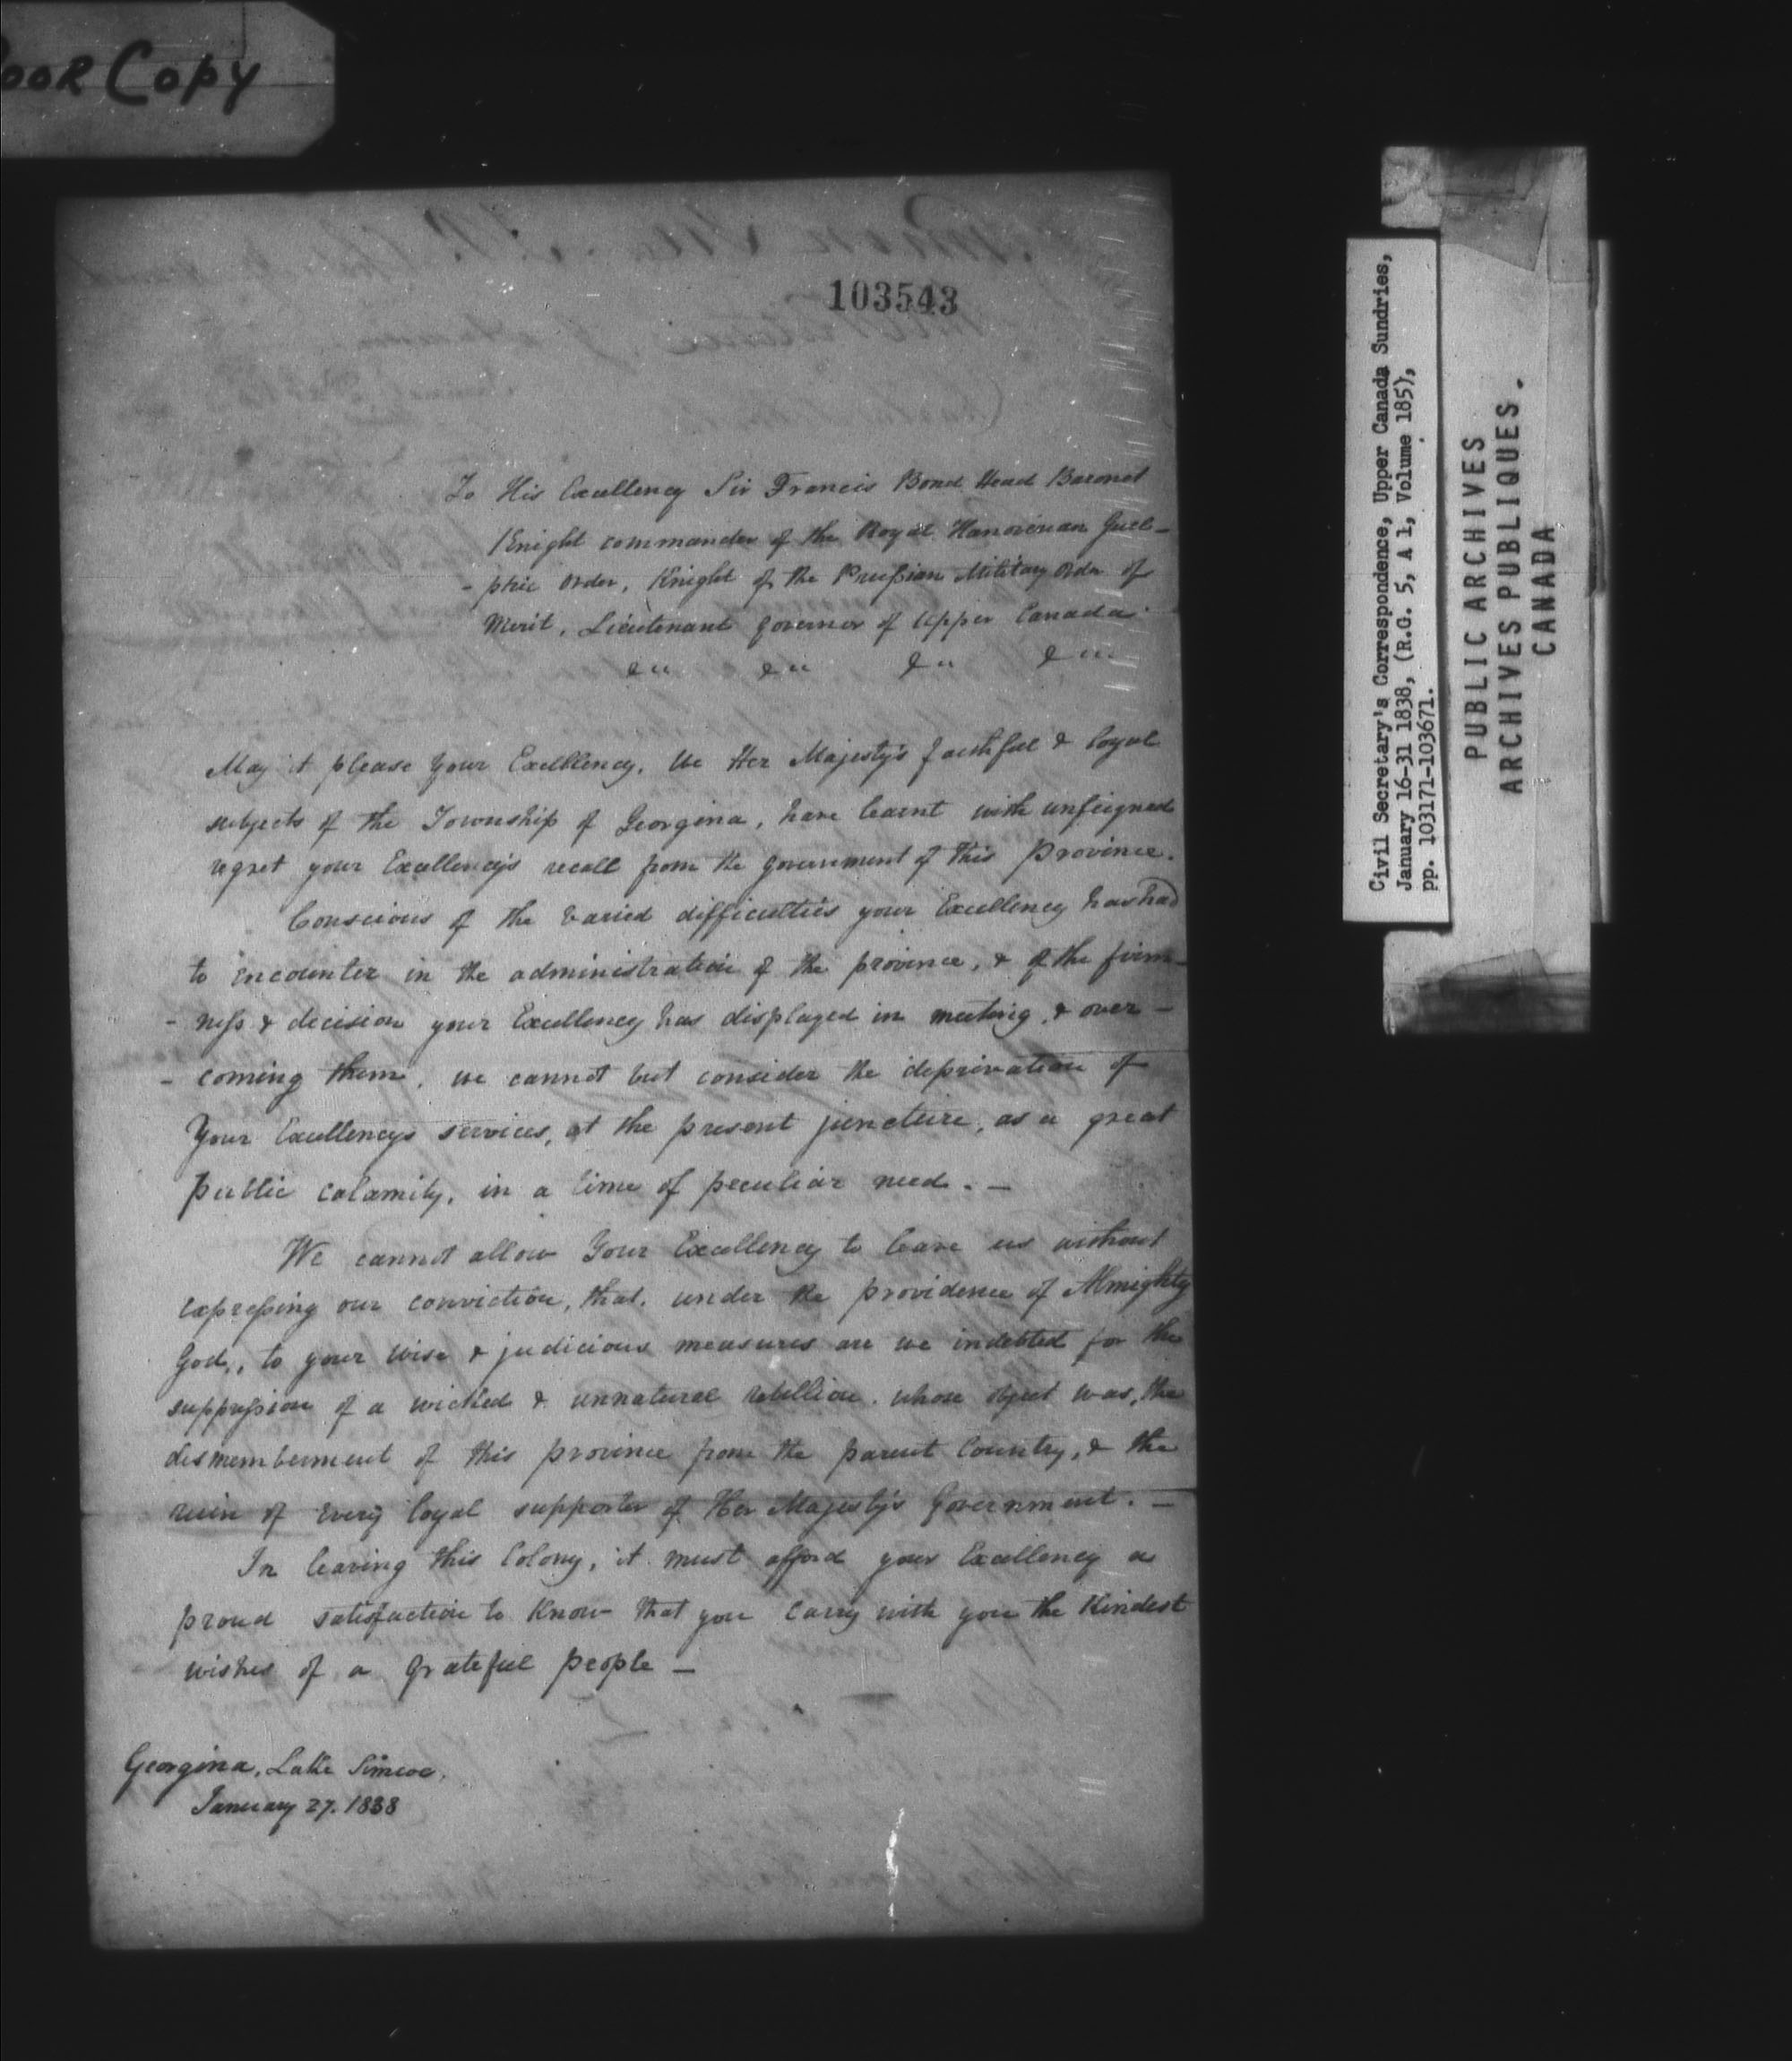 Poor Copy
103543
To His Excellency Sir Francis Bond Head Baronet
Knight commander of the Royal Hanoverian Guel-
- phic order, Knight of the Prussian Military Order of
Merit, Lieutenant Governor of Upper Canada
&c &c &c &c
May it please Your Excellency, We Her Majesty's faithful & loyal
subjects of the Township of Georgina, have learnt with unfeigned
regret your Excellency's recall from the government of this Province.
Conscious of the varied difficulties your Excellency has had
to encounter in the administration of the province, & of the firm-
- ness & decision your Excellency has displayed in meeting & over-
- coming them, we cannot but consider the deprivation of
Your Excellencys services, at the present juncture, as a great
public calamity, in a time of peculiar need. —
We cannot allow Your Excellency to leave us without
expressing our conviction, that, under the providence of Almighty
God, to your wise & judicious measures are we indebted for the
suppression of a wicked & unnatural rebellion, whose object was, the
dismemberment of this province from the parent Country, & the
ruin of every loyal supporter of Her Majesty's Government. —
In leaving this Colony, it must afford your Excellency a
proud satisfaction to know that you carry with you the kindest
wishes of a grateful people —
Georgina, Lake Simcoe,
January 27. 1838
Civil Secretary's Correspondence, Upper Canada Sundries,
January 16-31 1838, (R.G. 5, A 1, Volume 185),
pp. 103171-103671.
PUBLIC ARCHIVES
ARCHIVES PUBLIQUES.
CANADA